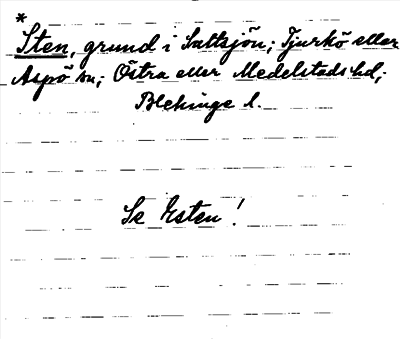 *
Sten, grund i Saltsjön; Tjurkö eller
Aspö sn; Östra eller Medelstads hd;
Blekinge l.
Se Esten!